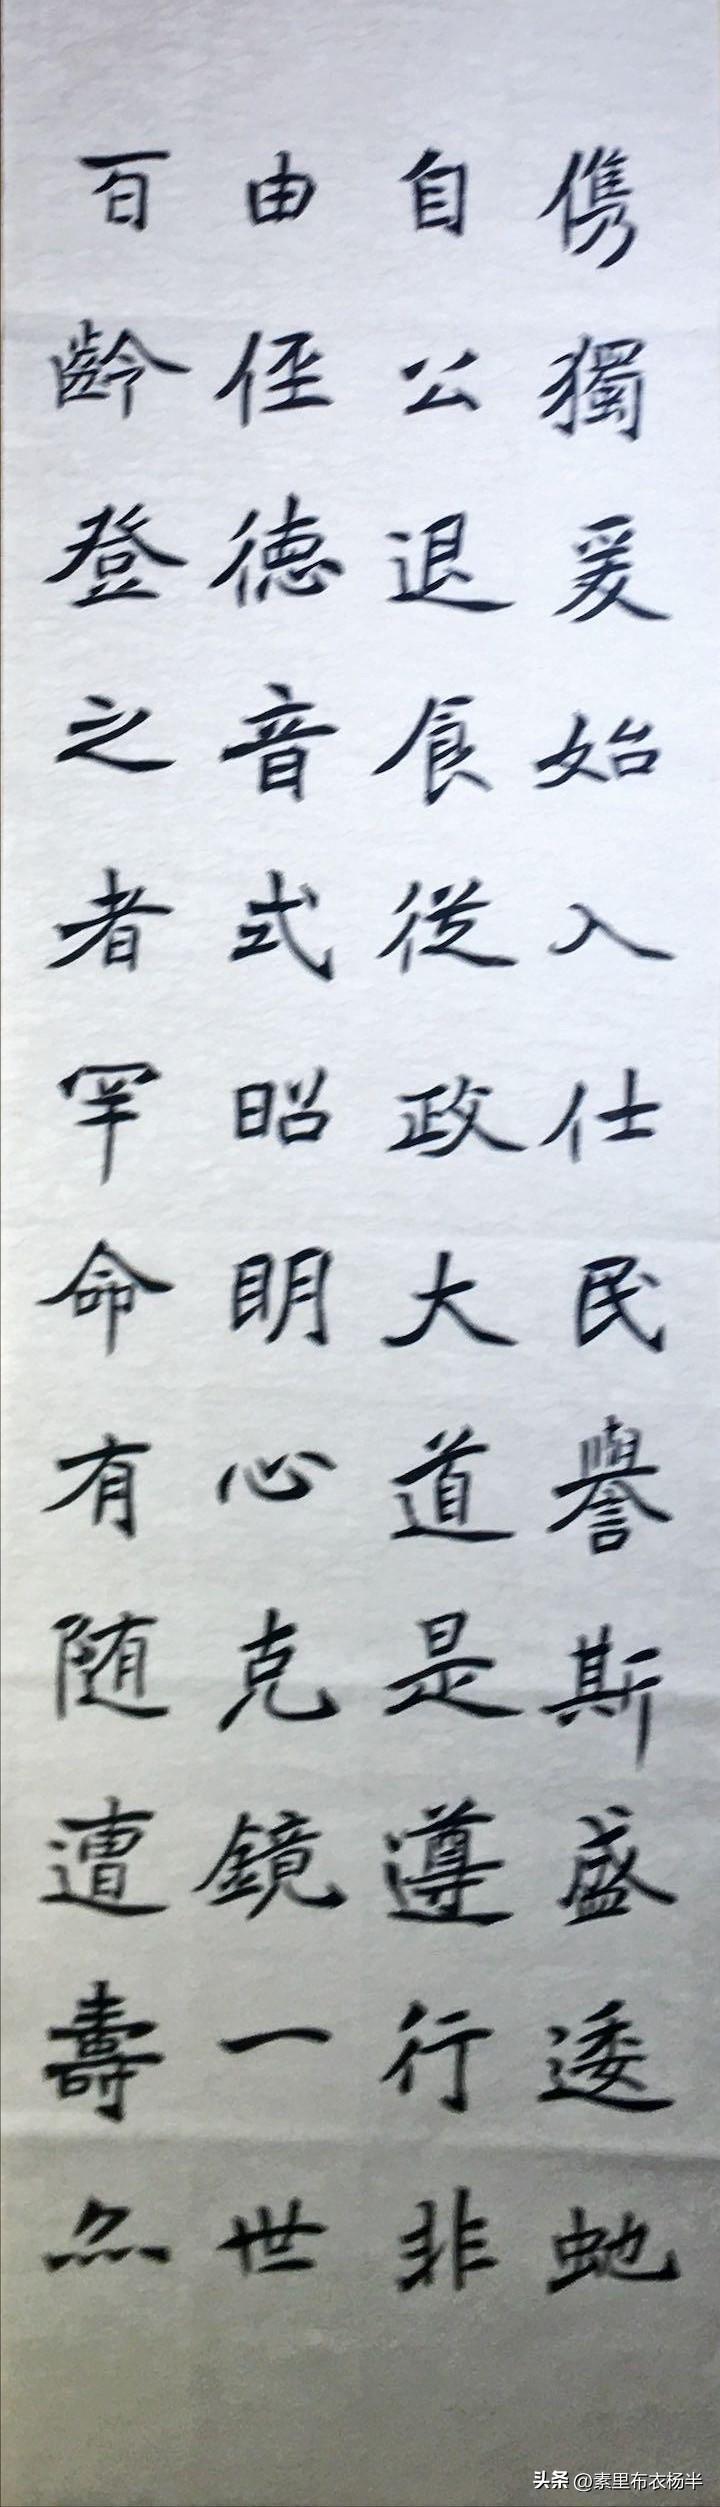 儁獨爰始入仕民譽斯盛逶虵
自公退食從政大道是遵行非
由俓徳音式昭明心克鏡一世
百齡登之者罕命有随遭壽
头条 @素里布衣杨半